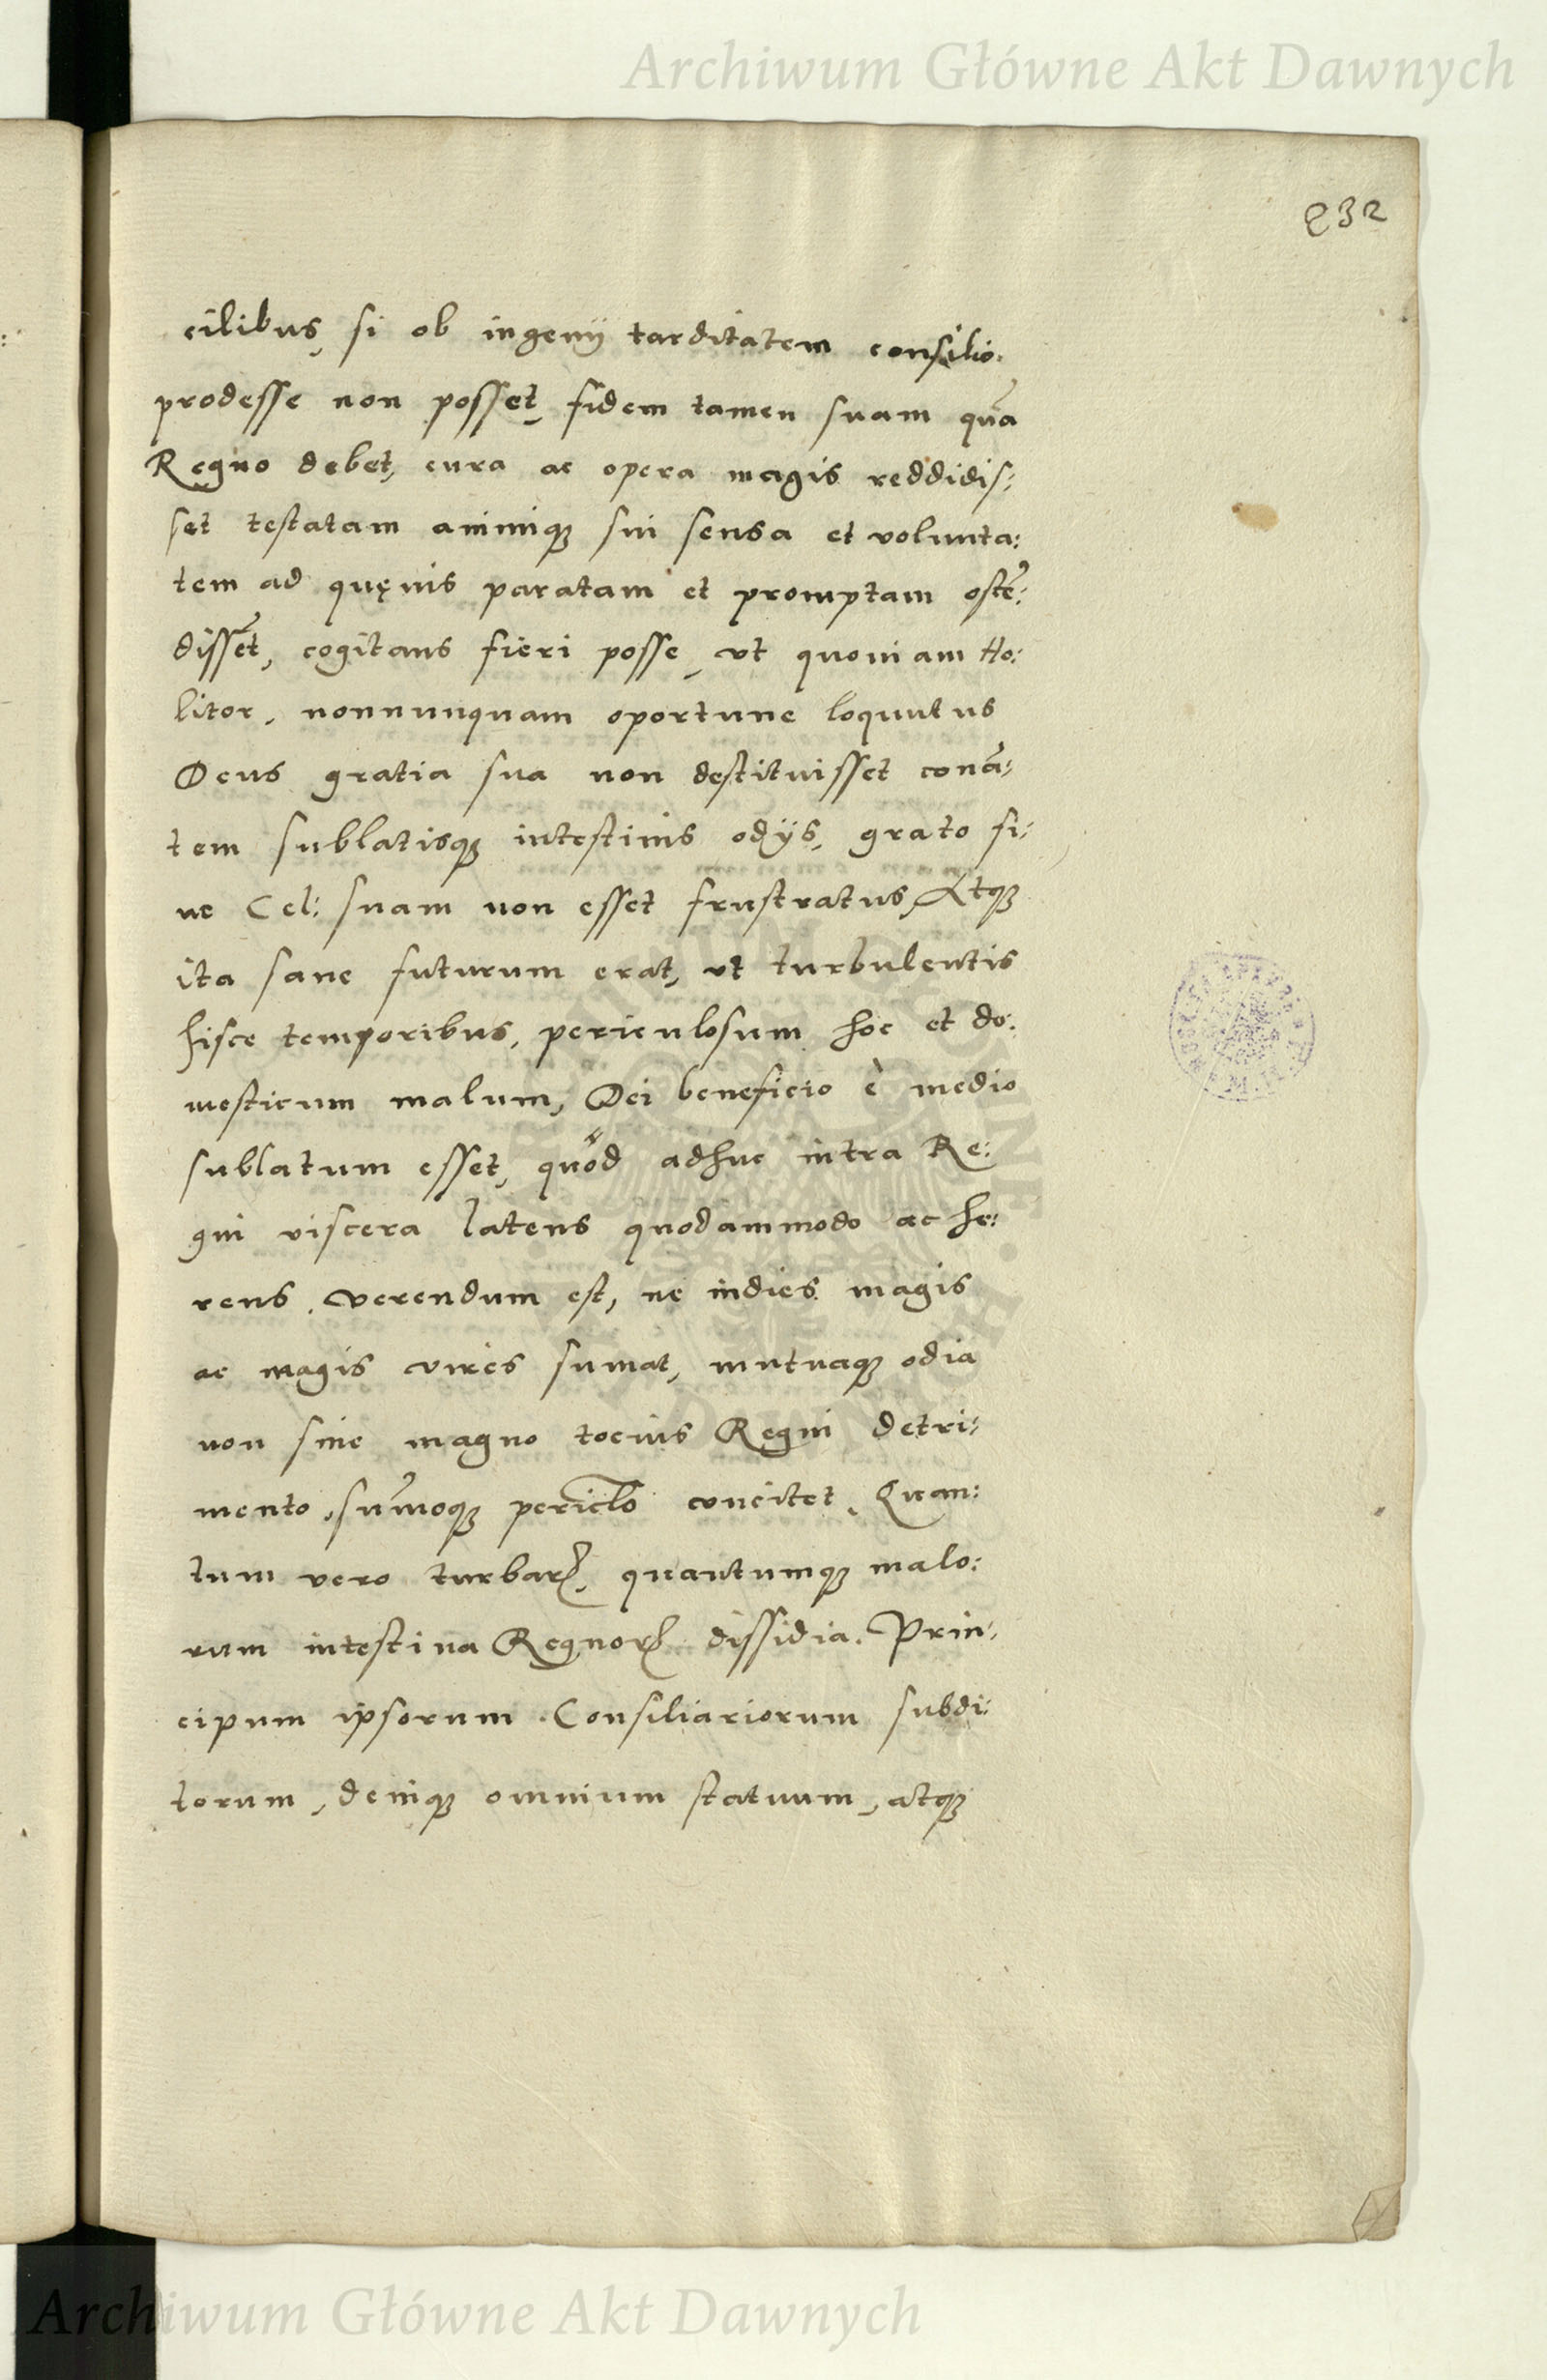 Archiwum Główne Akt Dawnych
232
cilibus, si ob ingenij tarditatem consilio.
prodesse non posset, fidem tamen suam quã
Regno debet, cura ac opera magis reddidis:
set testatam animiqꝫ sui sensa et volunta:
tem ad quęuis paratam et promptam ostẽ:
disset, cogitans fieri posse, vt quoniam Ho:
litor, nonnunquam oportune loquutus
Deus gratia sua non destituisset conã:
tem sublatisqꝫ intestinis odijs, grato fi:
ne Cel: suam non esset frustratus, Atqꝫ
ita sane futurum erat, vt turbulentis
hisce temporibus, periculosum hoc et do:
mesticum malum, Dei beneficio è medio
sublatum esset, quod adhuc intra Re:
gni viscera latens quodammodo ac he:
rens, verendum est, ne indies magis
ac magis vires sumat, mutuaqꝫ odia
non sine magno tocius Regni detri:
mento, sum̃oqꝫ periclo concitet. Quan:
tum vero turbarꝝ, quantumqꝫ malo:
rum intestina Regnorꝝ dissidia. Prin:
cipum ipsorum. Consiliariorum subdi:
torum, deniqꝫ omnium statuum, atqꝫ
Archiwum Główne Akt Dawnych